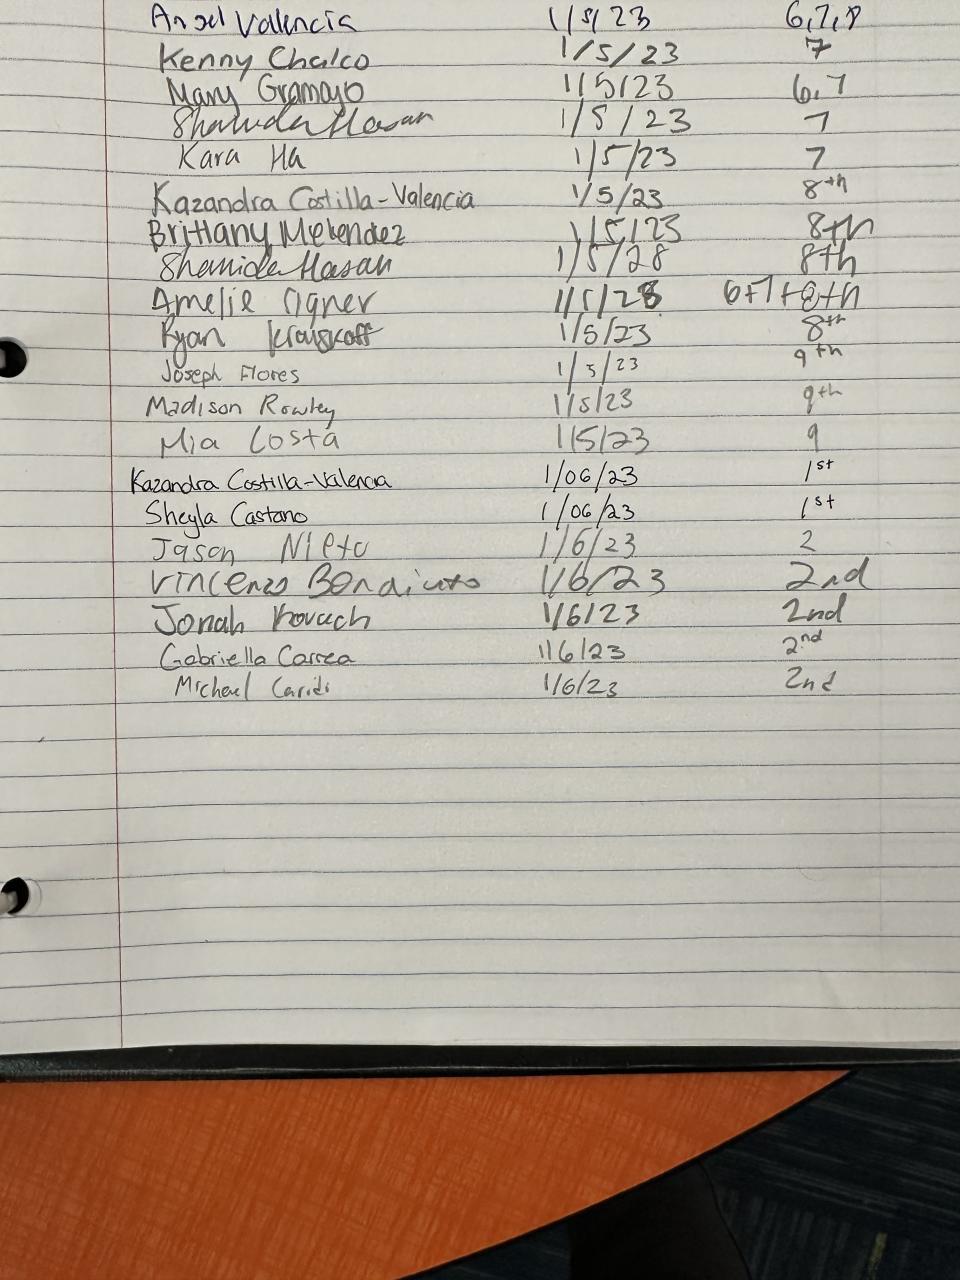 Angel Valencia 1/5/23 6,7,8
Kenny Chalco 1/5/23 7
Mary Gramayo 1/5/23 6,7
Shamida Hasan 1/5/23 7
Kara Ha 1/5/23 7
Kazandra Costilla-Valencia 1/5/23 8th
Brittany Melendez 1/5/23 8th
Shamida Hasan 1/5/28 8th
Amelie Signer 1/5/23 6+7+8th
Ryan 1/5/23 8th
Joseph Flores 1/5/23 9th
Madison Rowley 1/5/23 9th
Mia Costa 1/5/23 9
Kazandra Costilla-Valencia 1/06/23 1st
Sheyla Castano 1/06/23 1st
Jason Nieto 1/6/23 2
Vincenzo Bondiuto 1/6/23 2nd
Jonah Kovach 1/6/23 2nd
Gabriella Correa 1/6/23 2nd
Michael Caridi 1/6/23 2nd